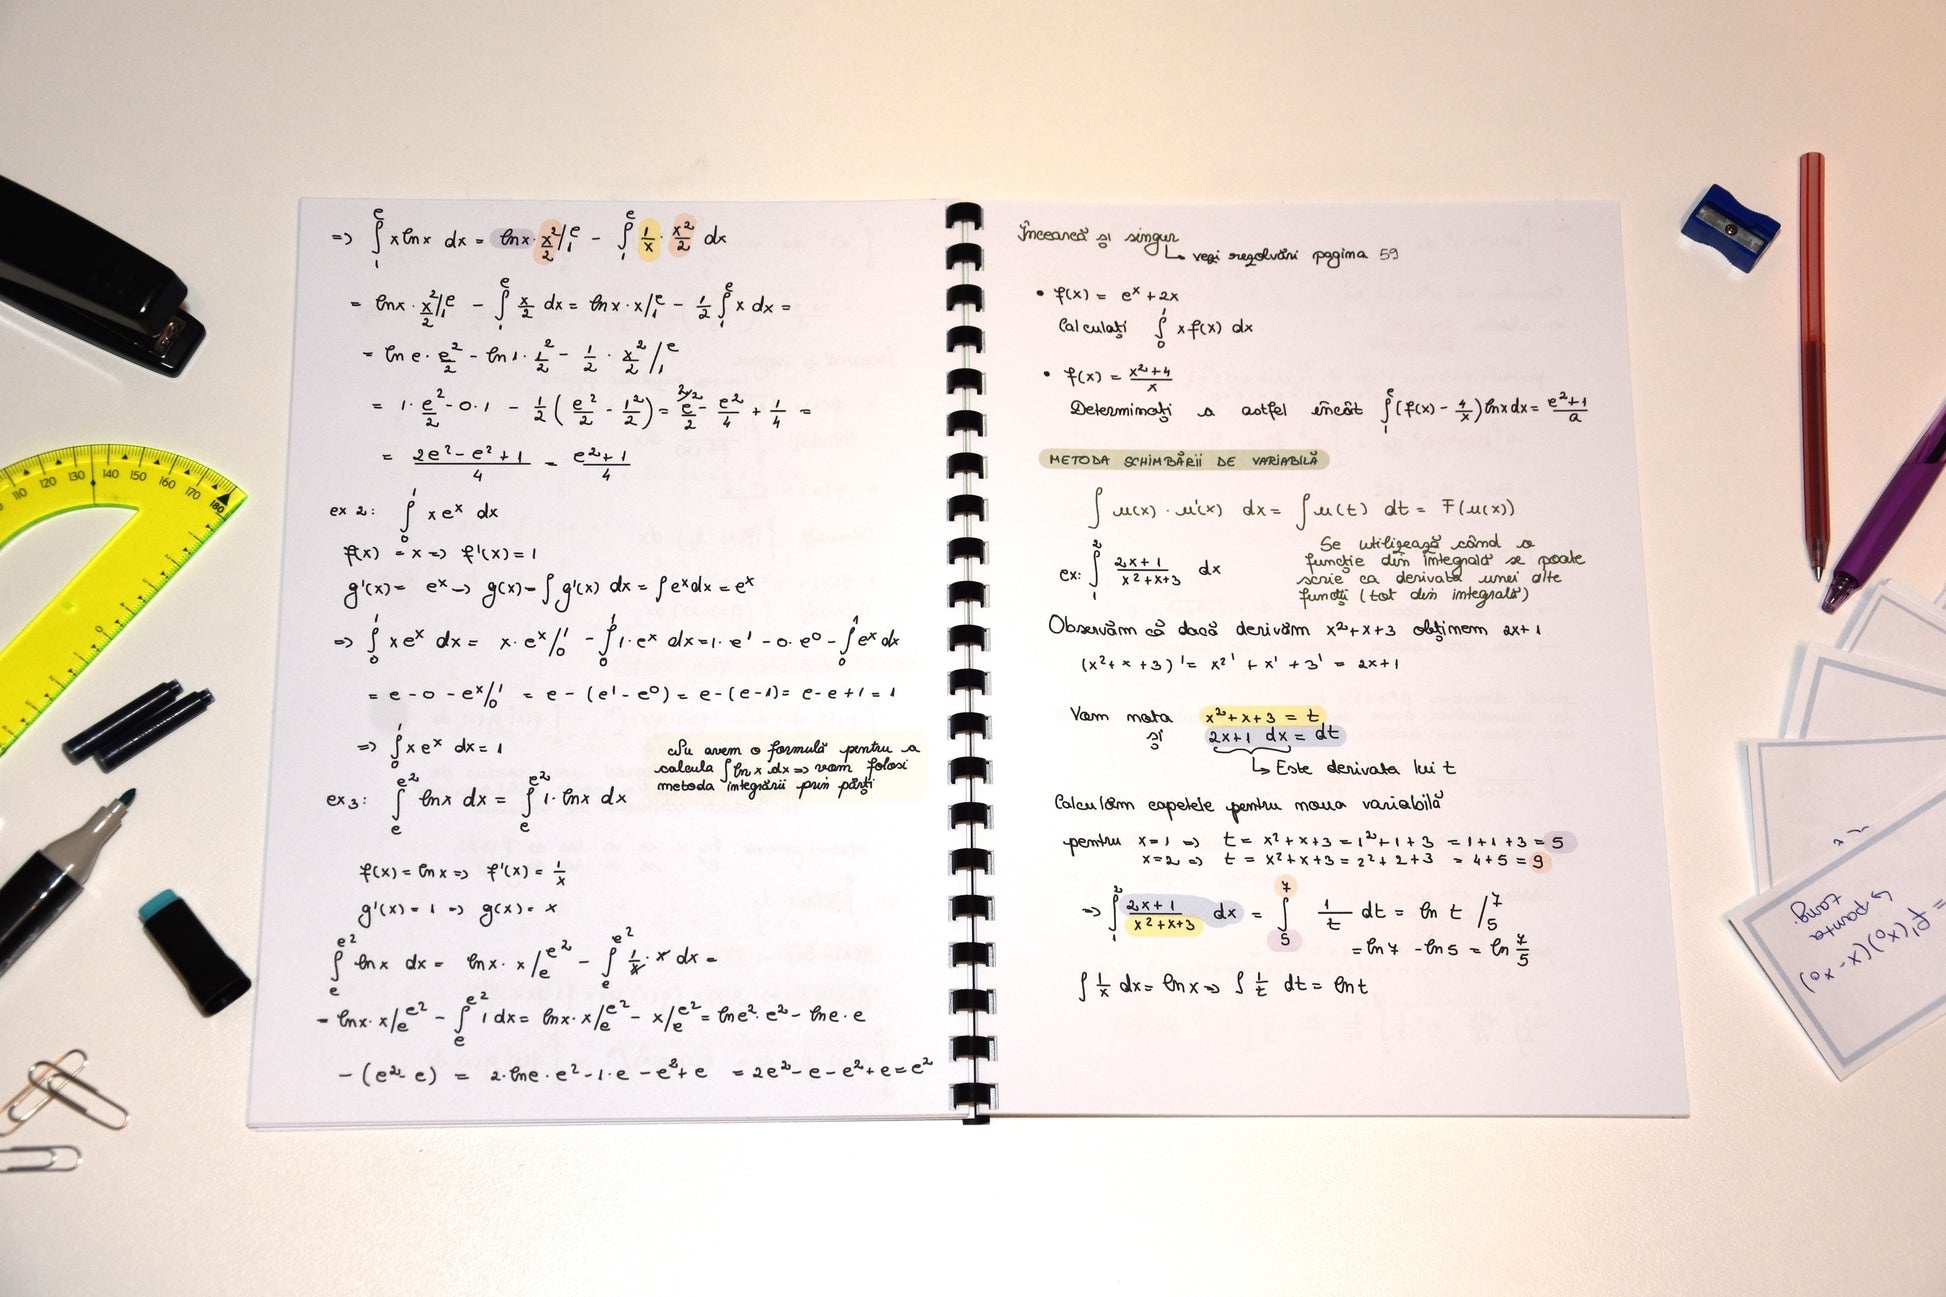 => ∫₁ᵉ x ln x dx = ln x · x²/2 /₁ᵉ - ∫₁ᵉ 1/x · x²/2 dx
= ln x · x²/2 /₁ᵉ - ∫₁ᵉ x/2 dx = ln x · x /₁ᵉ - 1/2 ∫₁ᵉ x dx =
= ln e · e²/2 - ln 1 · 1²/2 - 1/2 · x²/2 /₁ᵉ
= 1 · e²/2 - 0 · 1 - 1/2 ( e²/2 - 1²/2 ) = ²⁾e²/2 - e²/4 + 1/4 =
= (2e² - e² + 1)/4 = (e² + 1)/4
ex 2: ∫₀¹ x eˣ dx
f(x) = x => f'(x) = 1
g'(x) = eˣ => g(x) = ∫ g'(x) dx = ∫ eˣ dx = eˣ
=> ∫₀¹ x eˣ dx = x · eˣ /₀¹ - ∫₀¹ 1 · eˣ dx = 1 · e¹ - 0 · e⁰ - ∫₀¹ eˣ dx
= e - 0 - eˣ /₀¹ = e - (e¹ - e⁰) = e - (e - 1) = e - e + 1 = 1
=> ∫₀¹ x eˣ dx = 1
Nu avem o formulă pentru a
calcula ∫ ln x dx => vom folosi
metoda integrării prin părți
ex 3: ∫ₑ^e² ln x dx = ∫ₑ^e² 1 · ln x dx
f(x) = ln x => f'(x) = 1/x
g'(x) = 1 => g(x) = x
∫ₑ^e² ln x dx = ln x · x /ₑ^e² - ∫ₑ^e² 1/x · x dx =
= ln x · x /ₑ^e² - ∫ₑ^e² 1 dx = ln x · x /ₑ^e² - x /ₑ^e² = ln e² · e² - ln e · e
- (e² - e) = 2 · ln e · e² - 1 · e - e² + e = 2e² - e - e² + e = e²
Încearcă și singur
↳ vezi rezolvări pagina 59
• f(x) = eˣ + 2x
Calculați ∫₀¹ x f(x) dx
• f(x) = (x² + 4)/x
Determinați a astfel încât ∫₁ᵉ (f(x) - 4/x) ln x dx = (e² + 1)/a
METODA SCHIMBĂRII DE VARIABILĂ
∫ u(x) · u'(x) dx = ∫ u(t) dt = F(u(x))
ex: ∫₁² (2x + 1)/(x² + x + 3) dx
Se utilizează când o
funcție din integrală se poate
scrie ca derivata unei alte
funcții (tot din integrală)
Observăm că dacă derivăm x² + x + 3 obținem 2x + 1
(x² + x + 3)' = x²' + x' + 3' = 2x + 1
Vom nota x² + x + 3 = t
și 2x + 1 dx = dt
↳ Este derivata lui t
Calculăm capetele pentru noua variabilă
pentru x = 1 => t = x² + x + 3 = 1² + 1 + 3 = 1 + 1 + 3 = 5
x = 2 => t = x² + x + 3 = 2² + 2 + 3 = 4 + 5 = 9
=> ∫₁² (2x + 1)/(x² + x + 3) dx = ∫₅⁷ 1/t dt = ln t /₅⁷
= ln 7 - ln 5 = ln 7/5
∫ 1/x dx = ln x => ∫ 1/t dt = ln t
110 120 130 140 150 160 170 180
0
= f'(x₀)(x - x₀)
↳ panta
tang.